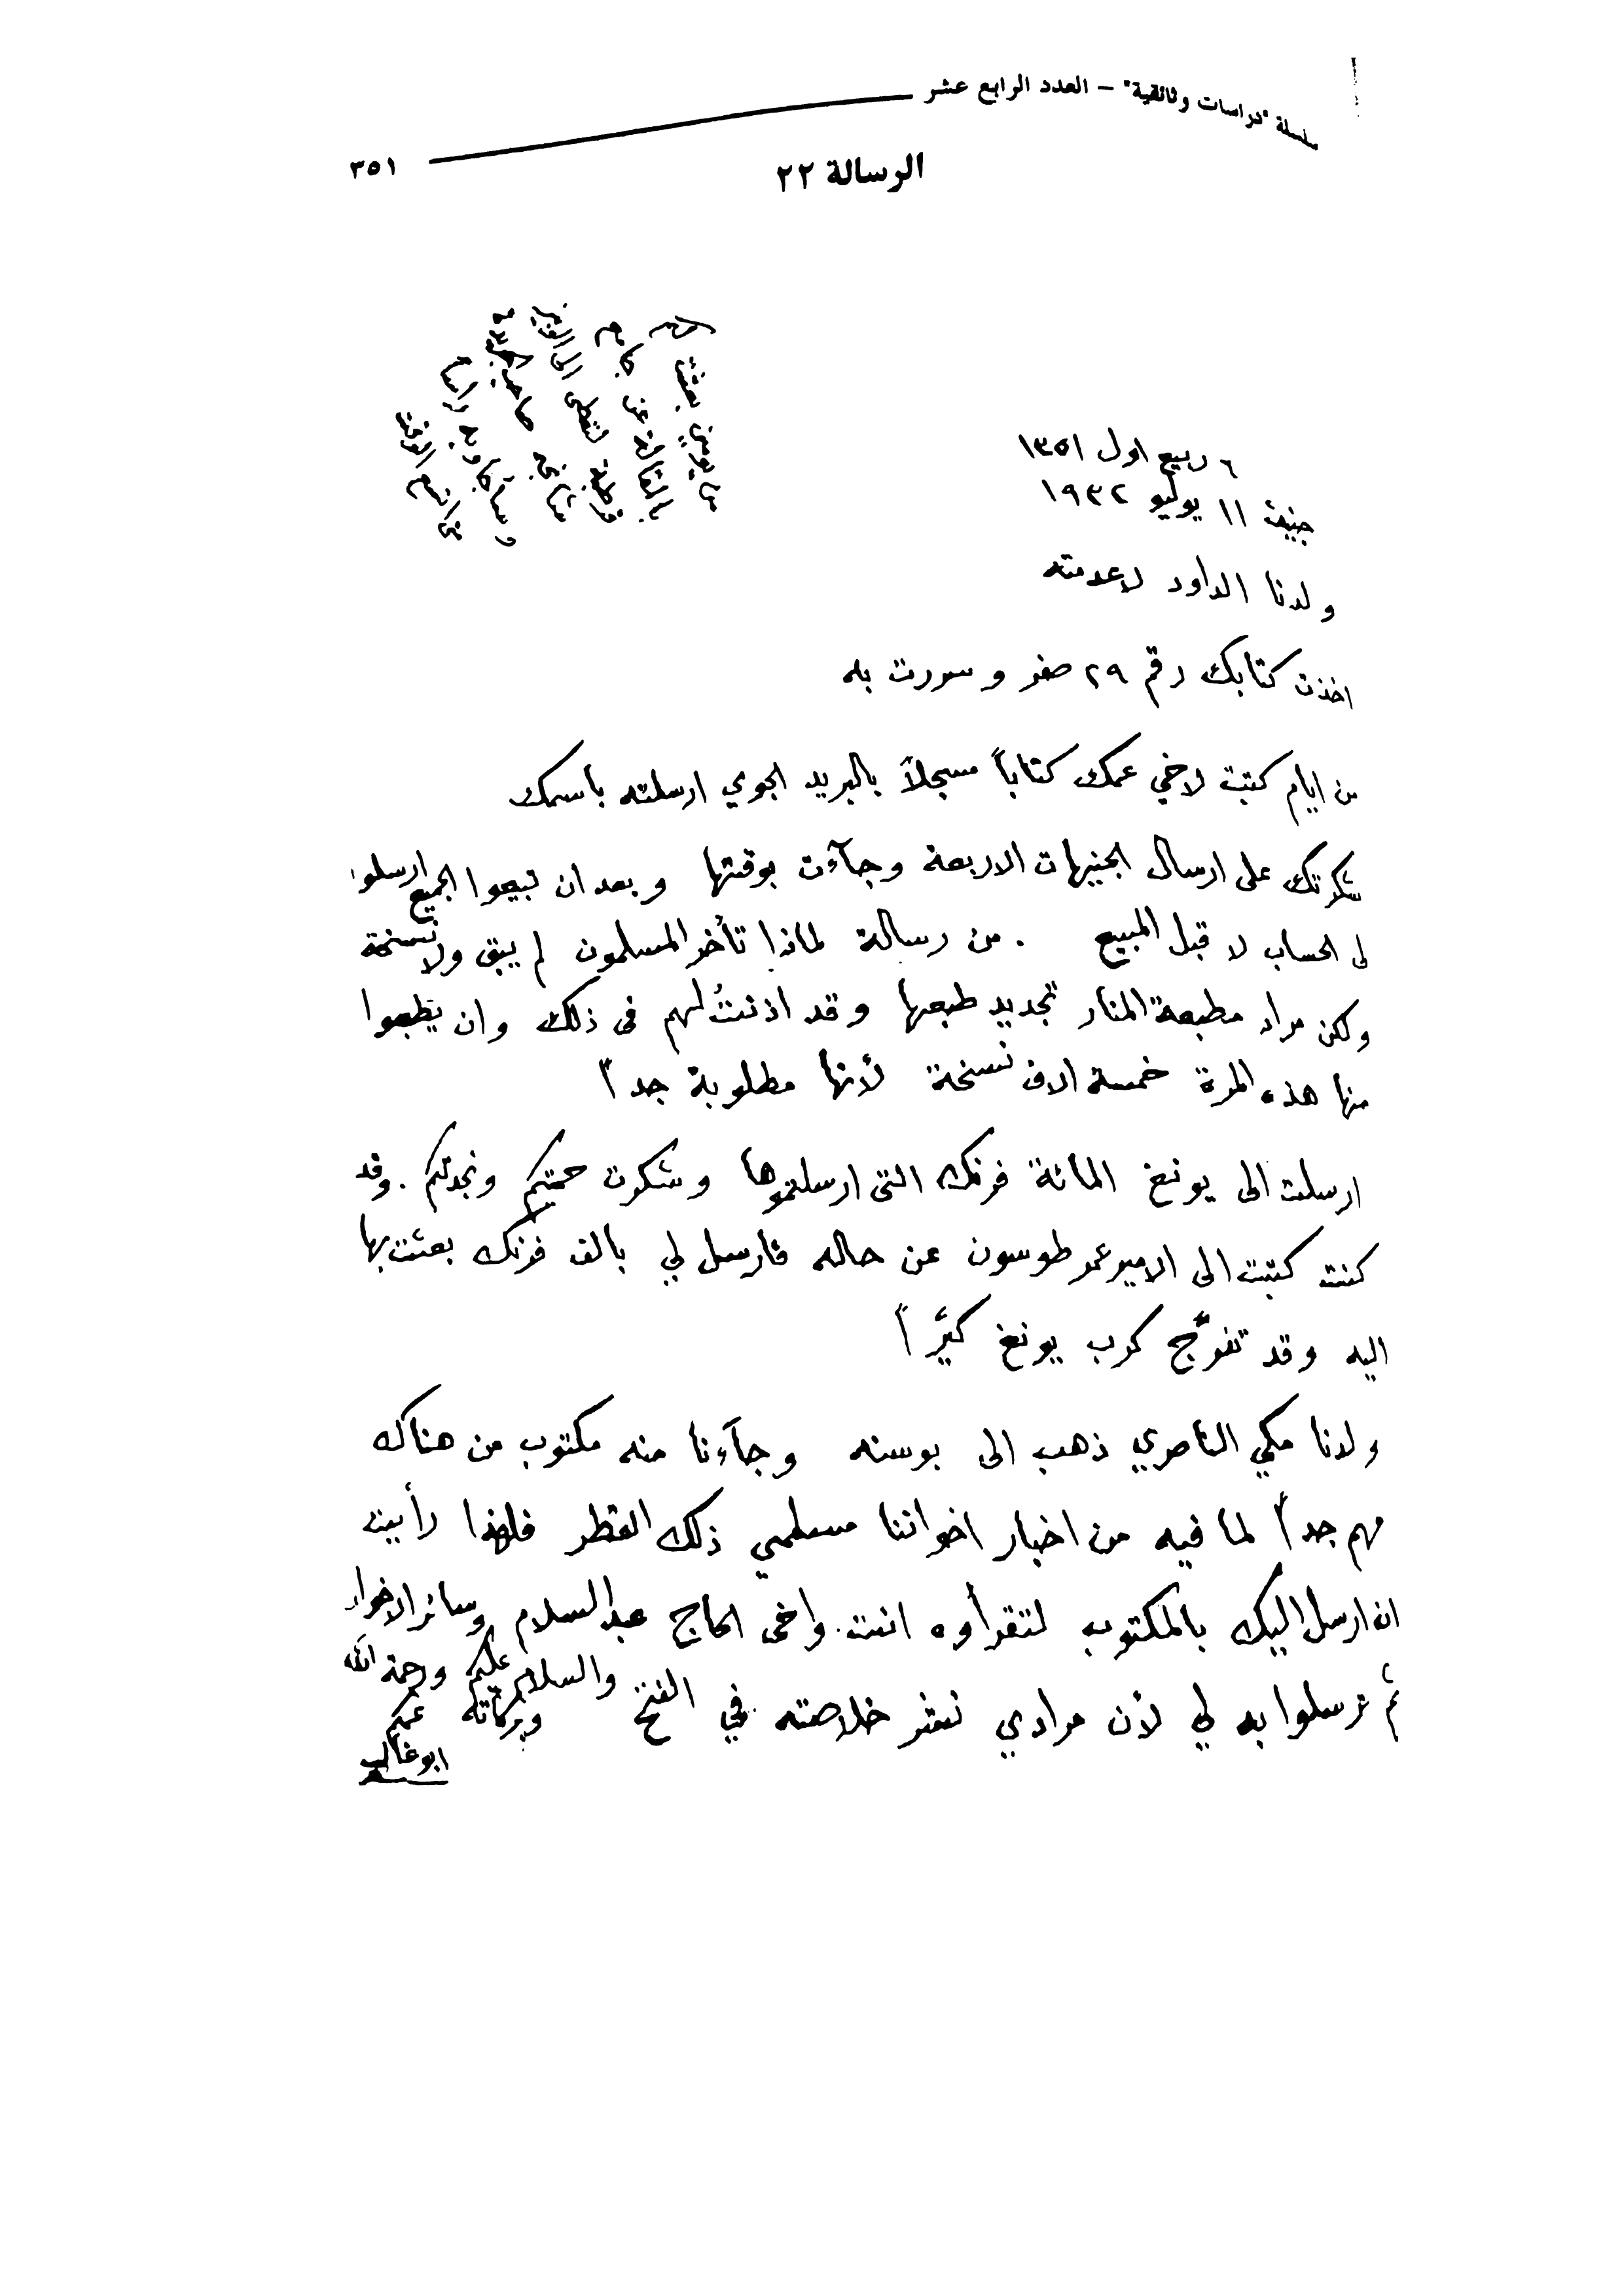 سلسلة "دراسات وثائقية" – العدد الرابع عشر
٣٥١
الرسالة ٢٢
٦ ربيع اول ١٣٥١
جنيف ١١ يوليو ١٩٣٢
ولدنا الداود لا عدمته
اخذت كتابك رقم ٢٩ صفر وسررت به
من ايام كتبت لاخي عمك كتاباً مسجلاً بالبريد الجوي ارسلته باسمك
شكرتك على ارسال الجنيهات الاربعة وجآءت بوقتها وبعد ان تبيعوا الجميع ارسلوا
لى الحساب لا قبل المبيع . من رسالة لماذا تأخر المسلمون لم يبق ولا نسخة
ولكن مراد مطبعة المنار تجديد طبعها وقد اذنتُ لهم فى ذلك وان يطبعوا
منها هذه المرة خمسة الاف نسخة لأنها مطلوبة جداً
ارسلت الى يونغ المائة فرنك التى ارسلتموها وشكرت حميتكم ونجدتكم . وقد
كنت كتبت الى الامير عمر طوسون عن حاله فارسل لي بالف فرنك بعثت بها
اليه وقد تفرَّج كرب يونغ كثيراً
ولدنا مكي الناصري ذهب الى بوسنه وجآءنا منه مكتوب من هناك
مهم جداً لما فيه من اخبار اخواننا مسلمي ذلك القطر فلهذا رأيت
ان ارسل اليك بالمكتوب لتقرأوه انت واخى الحاج عبد السلام وسائر الاخوان
ثم ترسلوا به لي لأن مرادي نشر خلاصته في الفتح والسلام عليكم ورحمة الله
وبركاته عمكم
ابو غالب